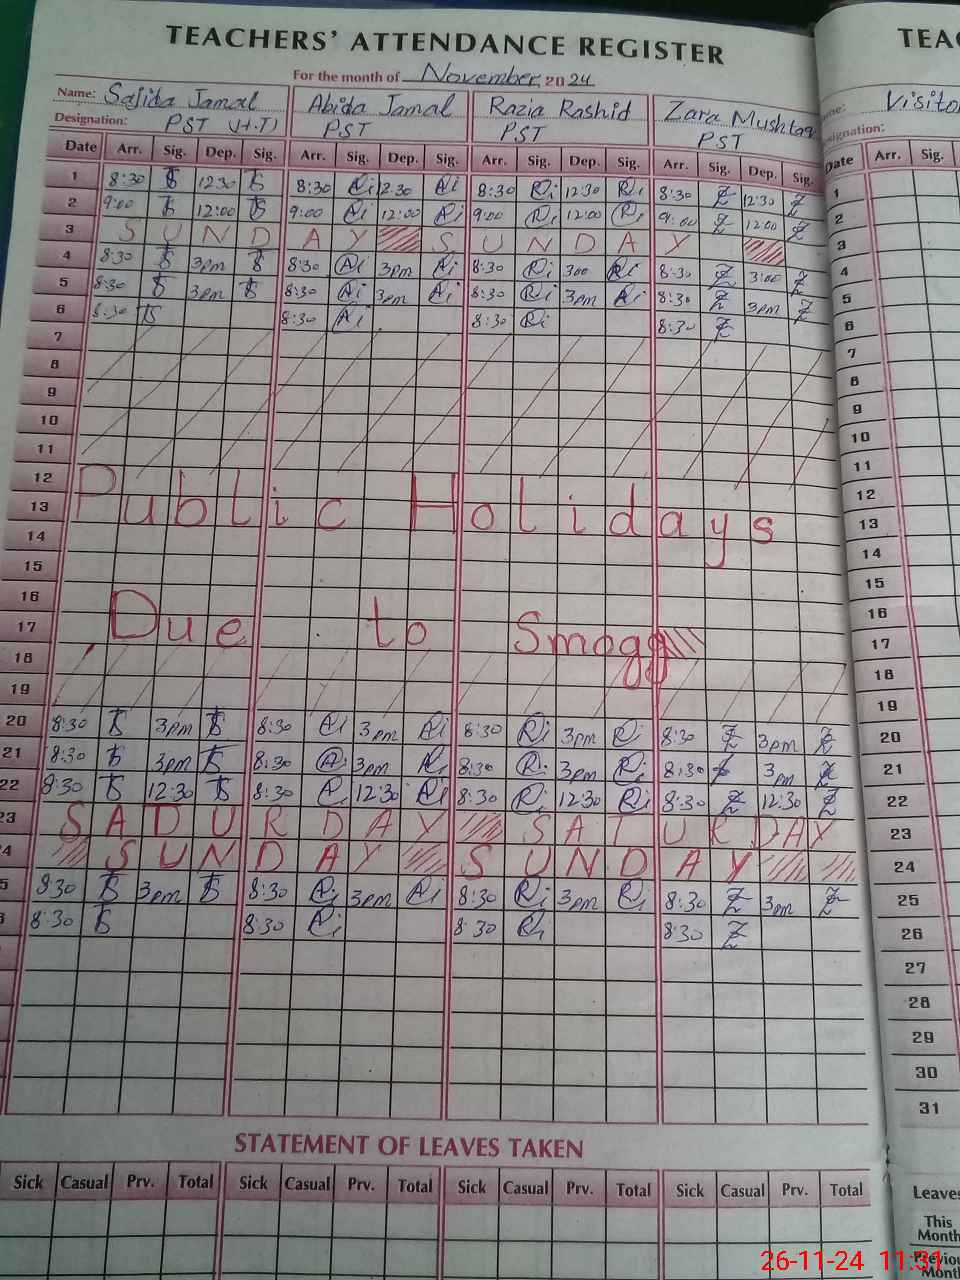 TEACHERS' ATTENDANCE REGISTER
For the month of November, 2024
Name: Sajida Jamal Abida Jamal Razia Rashid Zara Mushtaq
Designation: PST (H.T) PST PST PST
Date Arr. Sig. Dep. Sig. Arr. Sig. Dep. Sig. Arr. Sig. Dep. Sig. Arr. Sig. Dep. Sig.
1 8:30 12:30 8:30 Ai 2:30 Ai 8:30 Ri 12:30 Ri 8:30 Z 12:30 Z
2 9:00 12:00 9:00 Ai 12:00 Ai 9:00 Ri 12:00 Ri 9:00 Z 12:00 Z
3 S U N D A Y S U N D A Y
4 8:30 3pm 8:30 Ai 3pm Ai 8:30 Ri 3:00 Ri 8:30 Z 3:00 Z
5 8:30 3pm 8:30 Ai 3pm Ai 8:30 Ri 3pm Ri 8:30 Z 3pm Z
6 8:30 8:30 Ai 8:30 Ri 8:30 Z
7
8
9
10
11
12
13 Public Holidays
14
15
16
17 Due to Smogg
18
19
20 8:30 3pm 8:30 Ai 3pm Ai 8:30 Ri 3pm Ri 8:30 Z 3pm Z
21 8:30 3pm 8:30 Ai 3pm Ai 8:30 Ri 3pm Ri 8:30 Z 3pm Z
22 8:30 12:30 8:30 Ai 12:30 Ai 8:30 Ri 12:30 Ri 8:30 Z 12:30 Z
23 S A D U R D A Y S A T U R D A Y
24 S U N D A Y S U N D A Y
25 8:30 3pm 8:30 Ai 3pm Ai 8:30 Ri 3pm Ri 8:30 Z 3pm Z
26 8:30 8:30 Ai 8:30 Ri 8:30 Z
STATEMENT OF LEAVES TAKEN
Sick Casual Prv. Total Sick Casual Prv. Total Sick Casual Prv. Total Sick Casual Prv. Total
Date Arr. Sig.
1
2
3
4
5
6
7
8
9
10
11
12
13
14
15
16
17
18
19
20
21
22
23
24
25
26
27
28
29
30
31
Leaves
This
Month
Month
26-11-24 11:31